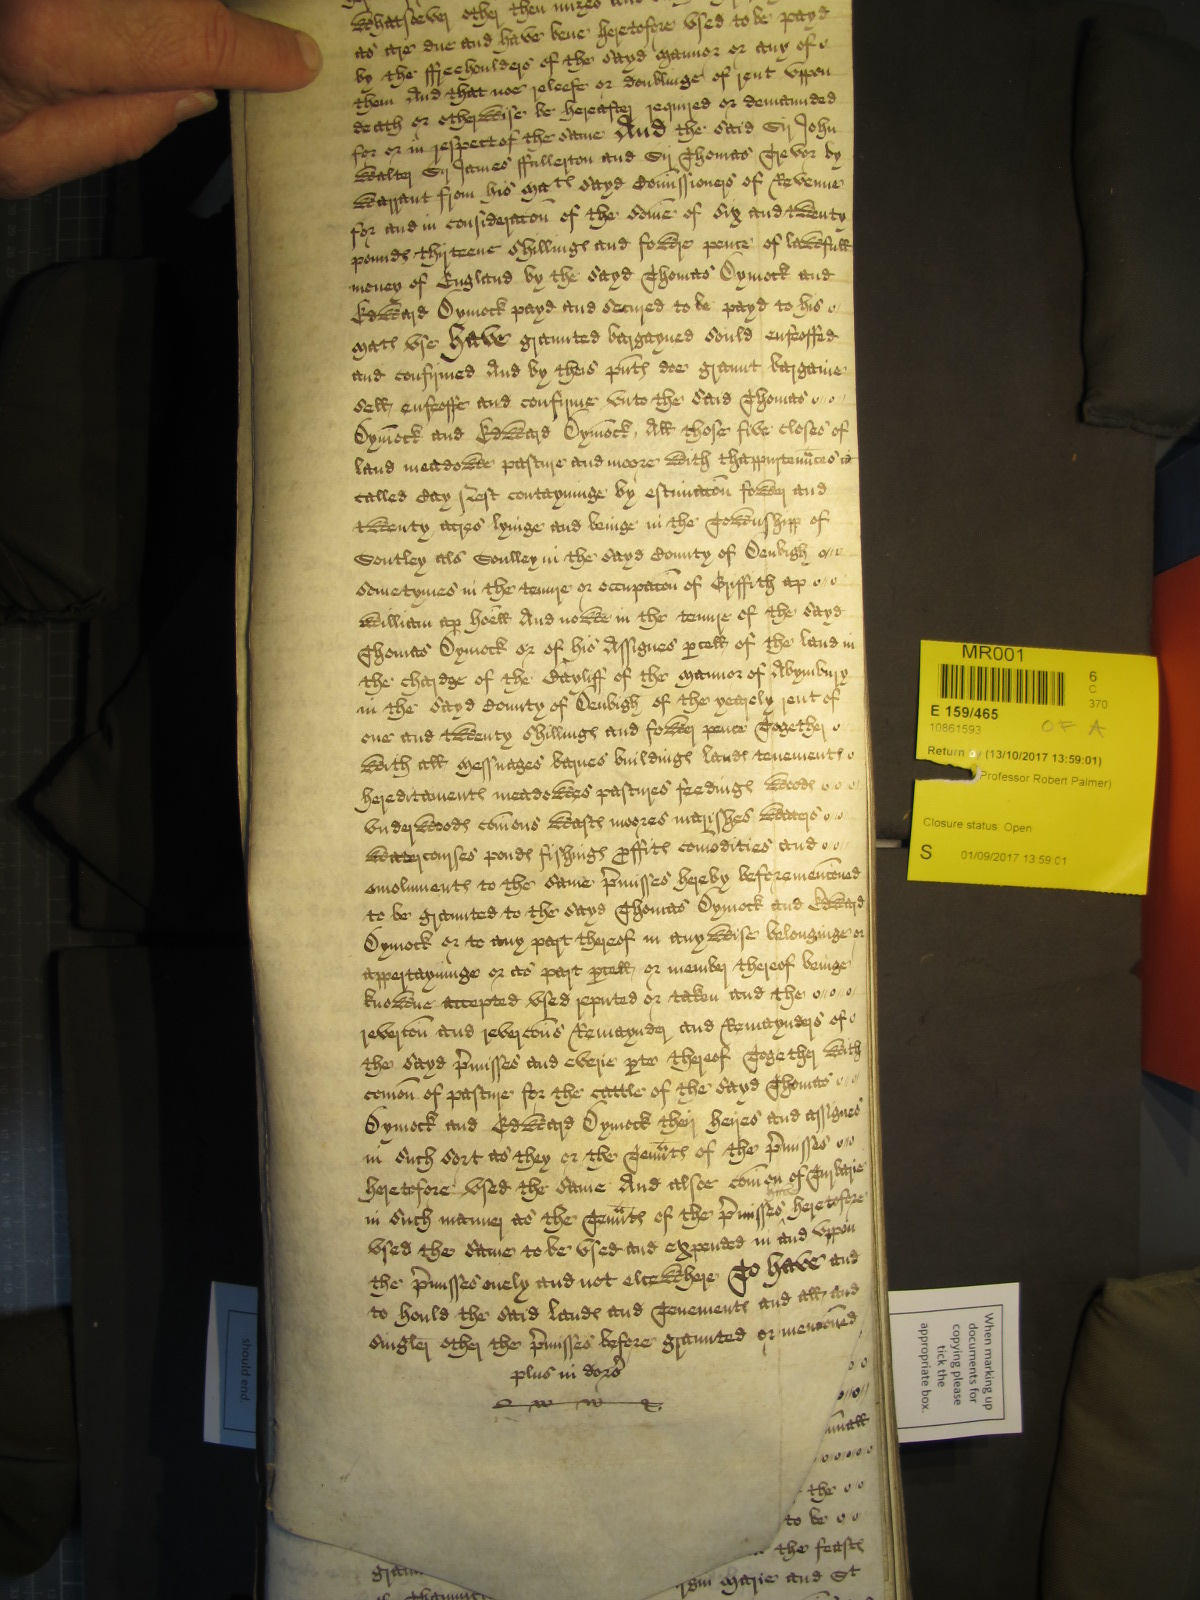 whatsoever other then
as are due and have bene heretofore used to be payd
by the ffreehoulders of the sayd mannor or any of
them And that noe releefe or doublinge of rent uppon
death or otherwise be hereafter required or demaunded
for or in respect of the same And the said Sir John
Walter Sir James ffullerton and Sir Thomas Trevor by
warrant from his Maties sayd Comissioners of Revenue
for and in consideracon of the some of Six and twenty
pounds thirteene shillings and fowre pence of lawfull
money of England by the sayd Thomas Dymock and
Edward Dymock payd and secured to be payd to his
Mats use have graunted bargayned sould enfeoffed
and confirmed And by theis pnts doe graunt bargaine
sell enfeoffe and confirme unto the said Thomas
Dymock and Edward Dymock All those five closes of
land meadowe pasture and moore with thappurtenances
called contayninge by estimacon fower and
twenty acres lyinge and beinge in the Towneshipp of
Sontley als Soulley in the sayd County of Denbigh
sometymes in the tenure or occupacon of Griffith ap
William ap Hoell And nowe in the tenure of the sayd
Thomas Dymock or of his Assignes pcell of the land in
the chardge of the Bayliff of the mannor of Abymbury
in the sayd County of Denbigh of the yearely rent of
one and twenty shillings and fower pence Together
with all messuages barnes buildings lands tenements
hereditaments meadowes pastures feedings woods
underwoods comons wasts moores marishes waters
watercourses ponds fishings proffitts comodities and
emoluments to the same pmisses hereby beforemencioned
to be graunted to the sayd Thomas Dymock and Edward
Dymock or to any part thereof in any wise belonginge or
appertayninge or as part pcell or member thereof beinge
knowne accepted used reputed or taken and the
revercon and revercons Remaynder and Remaynders of
the sayd pmisses and everie pte thereof Together with
comon of pasture for the cattle of the sayd Thomas
Dymock and Edward Dymock their heires and assignes
in such sort as they or the Tenants of the pmisses
heretofore used the same And alsoe comon of Turbarie
in such manner as the Tenants of the pmisses heretofore
used the same to be used and expended in and uppon
the pmisses onely and not elcewhere To have and
to hould the said Lands and Tenements and all and
singler other the pmisses before graunted or mencioned
plus in dors
the
to be
the feasts
Marie and St
MR001
6
C
370
E 159/465
OF A
10861593
Return by (13/10/2017 13:59:01)
Professor Robert Palmer)
Closure status: Open
S 01/09/2017 13:59:01
When marking up
documents for
copying please
tick the
appropriate box.
should end.